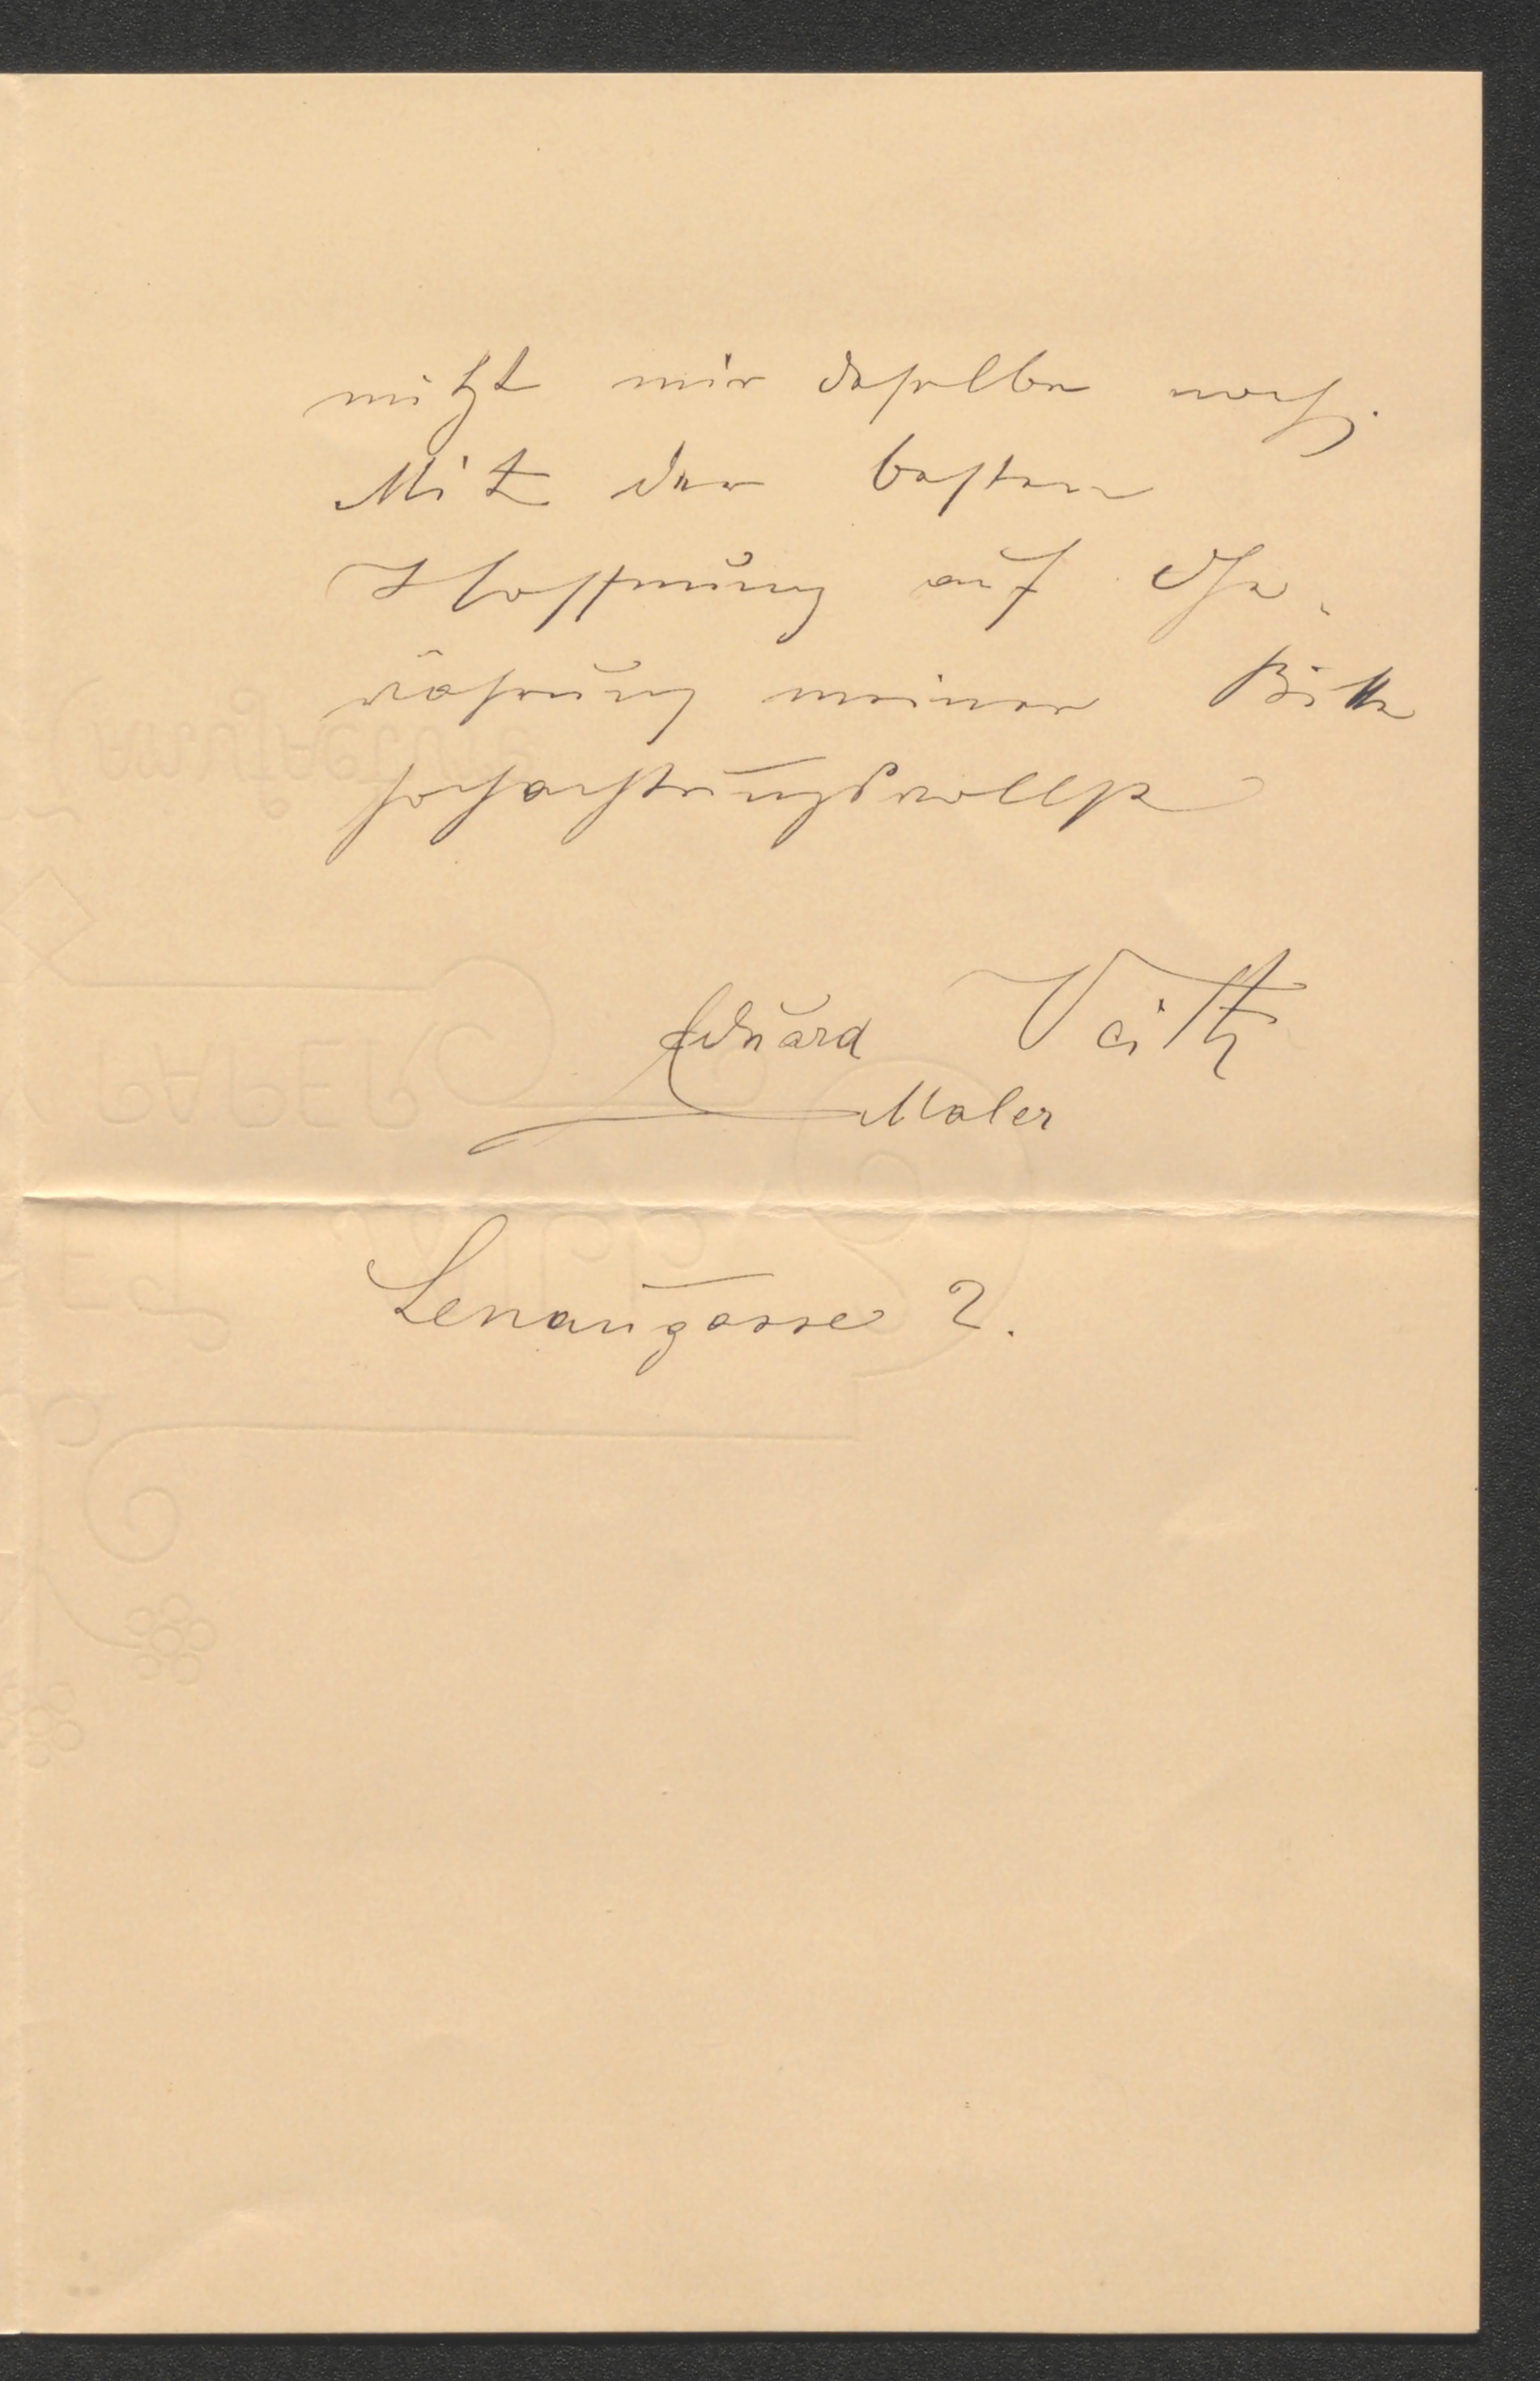 nützt mir dasselbe noch.
Mit der besten
Hoffnung auf Ge-
währung meiner Bitte
hochachtungsvollst
Eduard Veith
Maler
Lenaugasse 2.